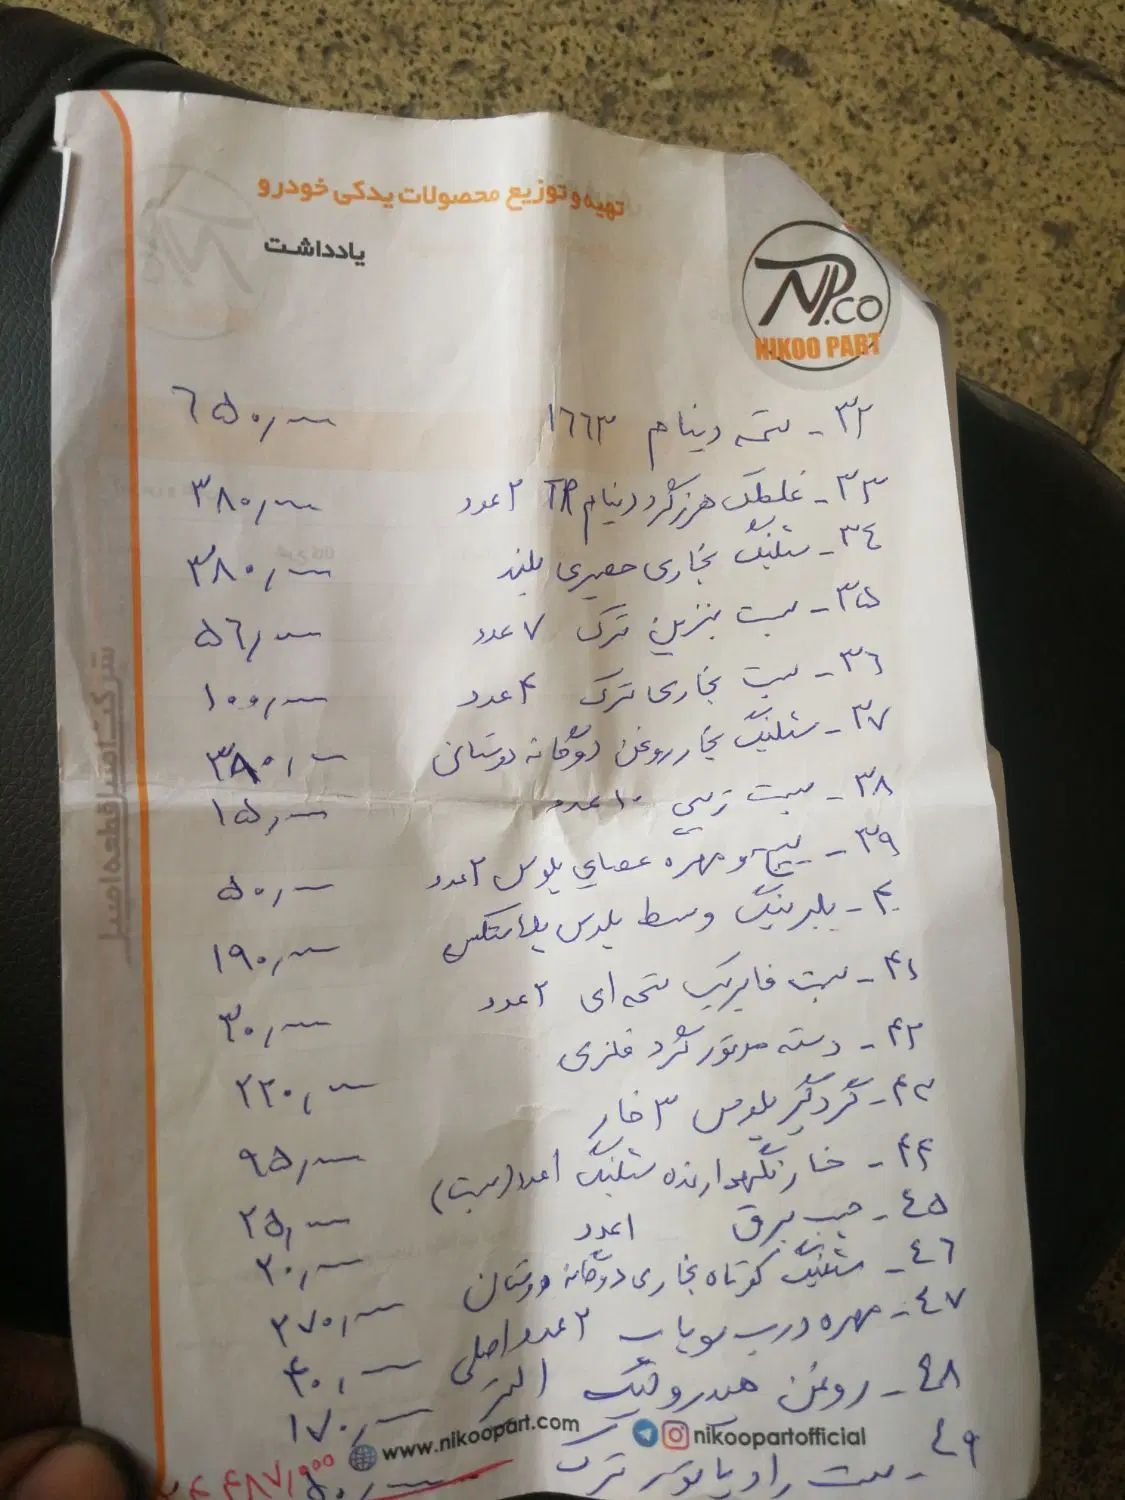 تهیه و توزیع محصولات یدکی خودرو
یادداشت
NP.CO
NIKOO PART
۳۲ - تسمه دینام ۱۶۶۳ ۶۵۰,۰۰۰
۳۳ - غلطک هرزگرد دینام TR ۲ عدد ۳۸۰,۰۰۰
۳۴ - شلنگ بخاری حصیری بلند ۳۸۰,۰۰۰
۳۵ - بست بنزین ترک ۷ عدد ۵۶,۰۰۰
۳۶ - بست بخاری ترک ۴ عدد ۱۰۰,۰۰۰
۳۷ - شلنگ بخار روغن دوگانه دوستان ۳۸۰,۰۰۰
۳۸ - بست زیپی ۱۰ عدد ۱۵,۰۰۰
۳۹ - پیچ و مهره عصایی پلوس ۲ عدد ۵۰,۰۰۰
۴۰ - بلبرینگ وسط پلوس ۱۹۰,۰۰۰
۴۱ - بست فابریک تسمه ای ۲ عدد ۳۰,۰۰۰
۴۲ - دسته موتور گرد فلزی ۲۲۰,۰۰۰
۴۳ - گردگیر پلوس ۳ خار ۹۵,۰۰۰
۴۴ - خار نگهدارنده شلنگ ۱ عدد (بست) ۲۵,۰۰۰
۴۵ - چسب برق ۱ عدد ۲۰,۰۰۰
۴۶ - شلنگ کوتاه بخاری دوگانه دوستان ۲۷۰,۰۰۰
۴۷ - مهره درب سوپاپ ۲ عدد اصلی ۴۰,۰۰۰
۴۸ - روغن هیدرولیک ۱۷۰,۰۰۰
www.nikoopart.com nikoopartofficial
۴۹ - بست رادیاتور ترک